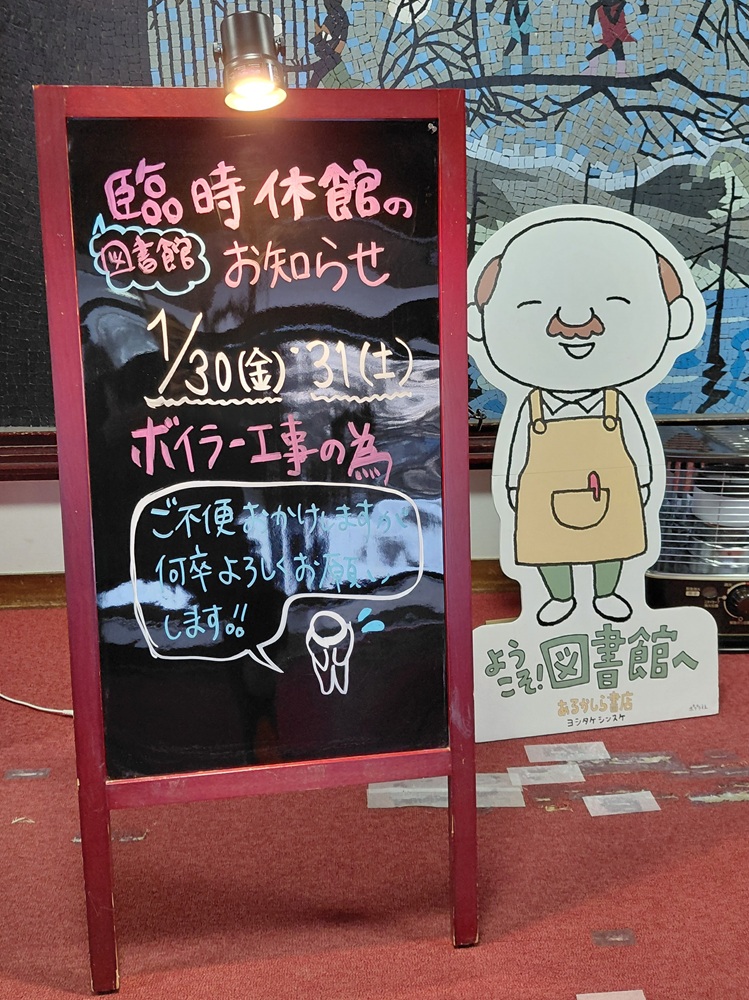 臨時休館の
図書館
お知らせ
1/30(金)・31(土)
ボイラー工事の為
ご不便おかけしますので
何卒よろしくお願い
します!!
ようこそ!図書館へ
あるかしら書店
ヨシタケシンスケ